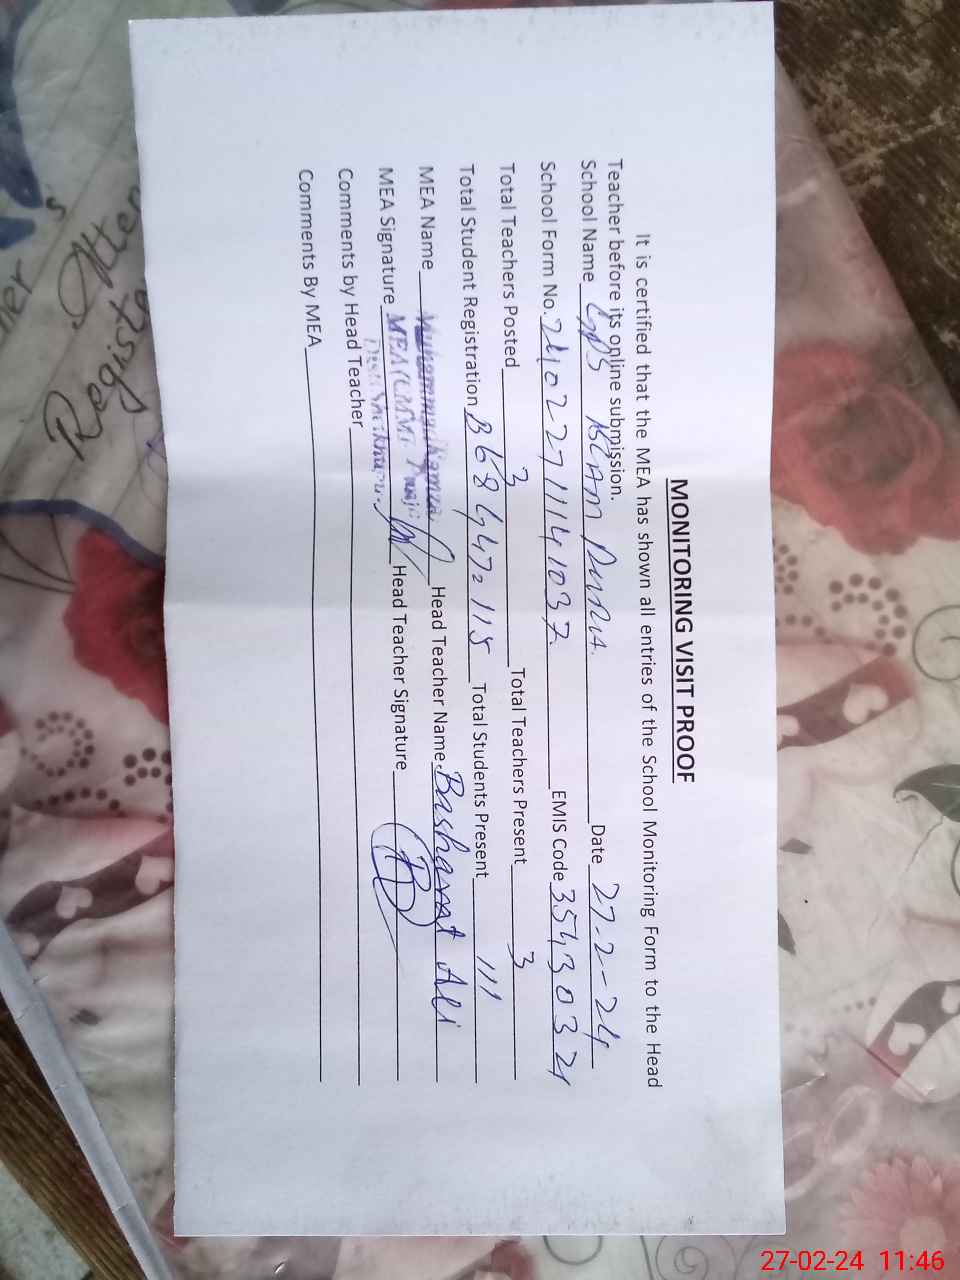 MONITORING VISIT PROOF
It is certified that the MEA has shown all entries of the School Monitoring Form to the Head
Teacher before its online submission.
School Name GPS Date 27-2-24
School Form No. 24022711141037 EMIS Code 35430321
Total Teachers Posted 3 Total Teachers Present 3
Total Student Registration B68 G47=115 Total Students Present 111
MEA Name Head Teacher Name Basharat Ali
MEA Signature MEA Head Teacher Signature
Comments by Head Teacher
Comments By MEA
Register
27-02-24 11:46